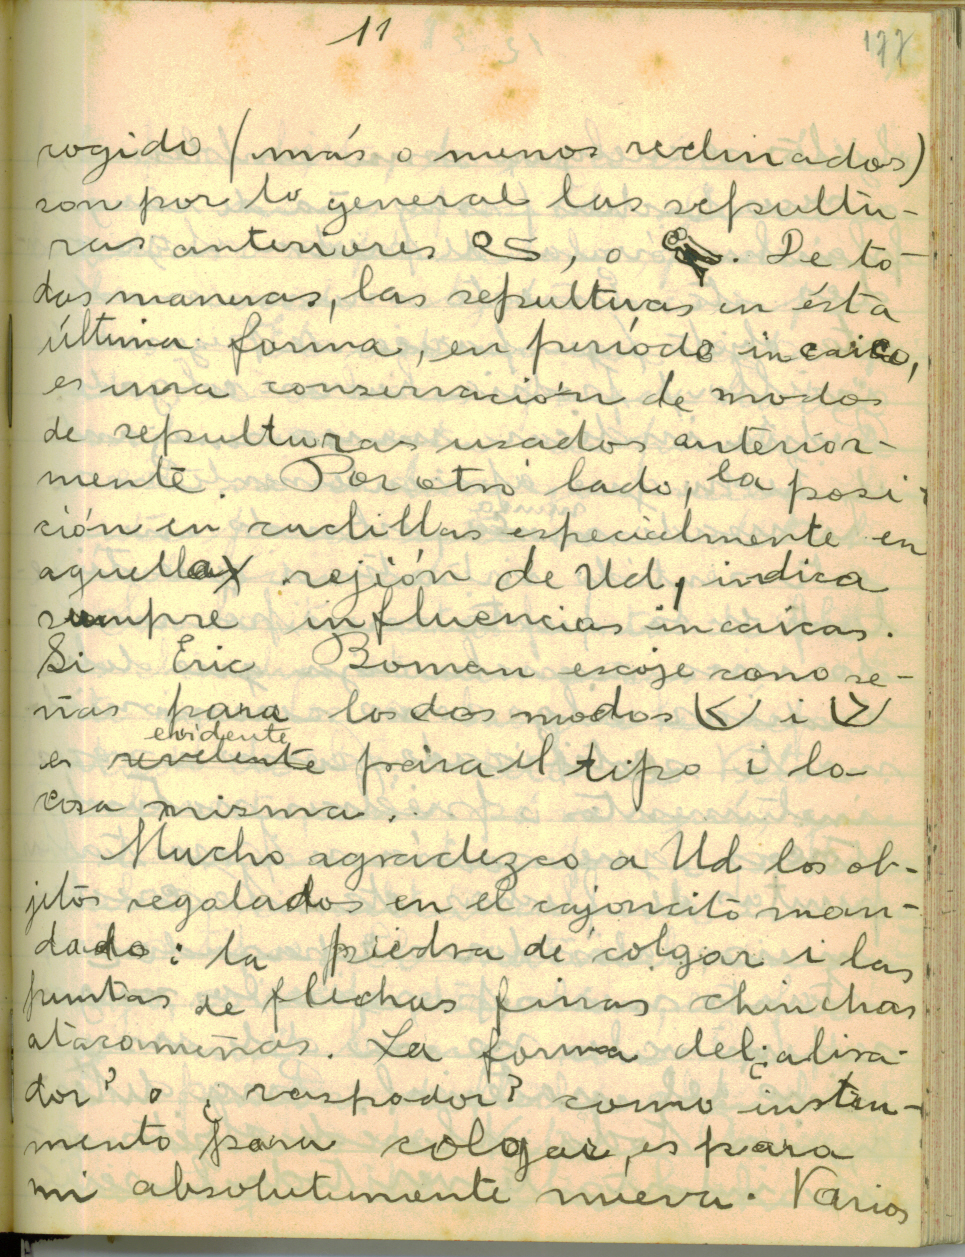 11
177
cogido (más o menos reclinados)
son por lo general las sepultu-
ras anteriores , o . De to-
das maneras, las sepulturas en ésta
última forma, en período incaico,
es una conservación de modos
de sepulturas usados anterior-
mente. Por otro lado, la posi-
ción en cuclillas especialmente en
aquella rejión de Ud, indica
siempre influencias incaicas.
Si Eric Boman escoje como se-
ñas para los dos modos < i >
evidente
es para el tipo i la
cosa misma.
Mucho agradezco a Ud los ob-
jetos regalados en el cajoncito man-
dado: la piedra de colgar i las
puntas de flechas finas chinchas
atacameñas. La forma del ¿alisa-
dor? o ¿raspador? como instru-
mento para colgar, es para
mi absolutamente nueva. Varios